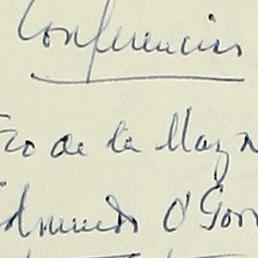 Conferencias
Fco de la Maza
Edmundo O'Gor